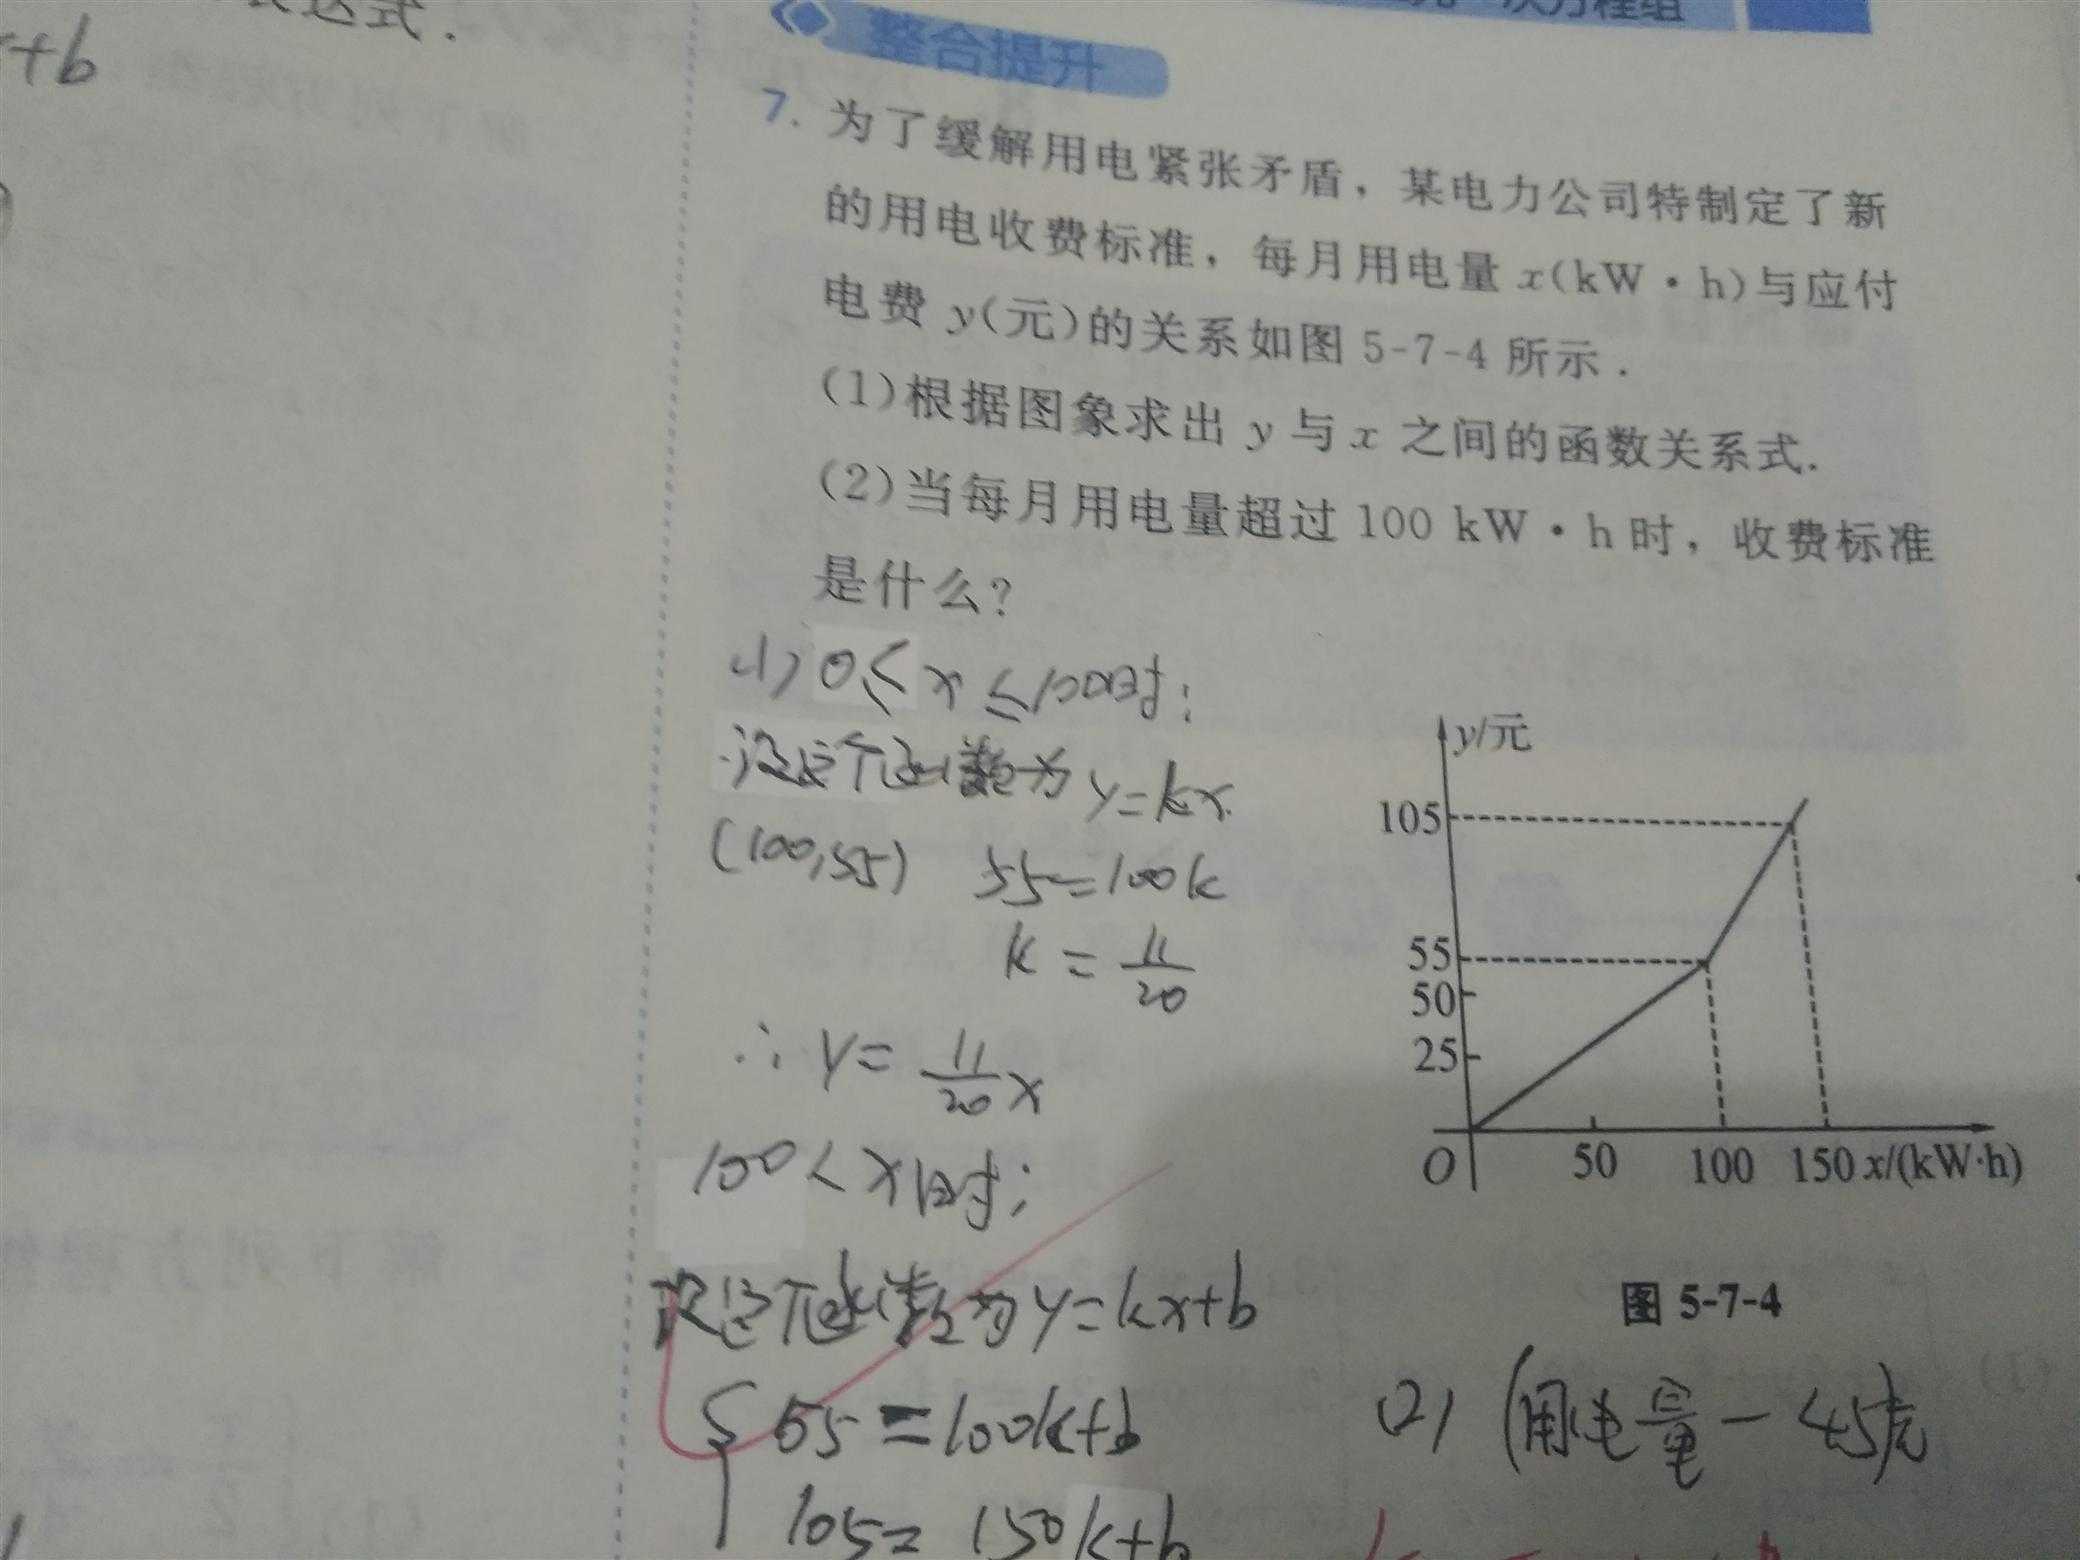 表达式.
+b
次方程组
整合提升
7. 为了缓解用电紧张矛盾，某电力公司特制定了新
的用电收费标准，每月用电量 x(kW·h)与应付
电费 y(元)的关系如图 5-7-4 所示.
(1)根据图象求出 y 与 x 之间的函数关系式.
(2)当每月用电量超过 100 kW·h 时，收费标准
是什么?
(1) 0≤x≤100时;
设这个函数为 y=kx
(100,55) 55=100k
k = 11/20
∴ y = 11/20 x
100<x时;
设这个函数为 y=kx+b
{ 55=100k+b
105=150k+b
y/元
105
55
50
25
O 50 100 150 x/(kW·h)
图 5-7-4
(2) (用电量-45)元